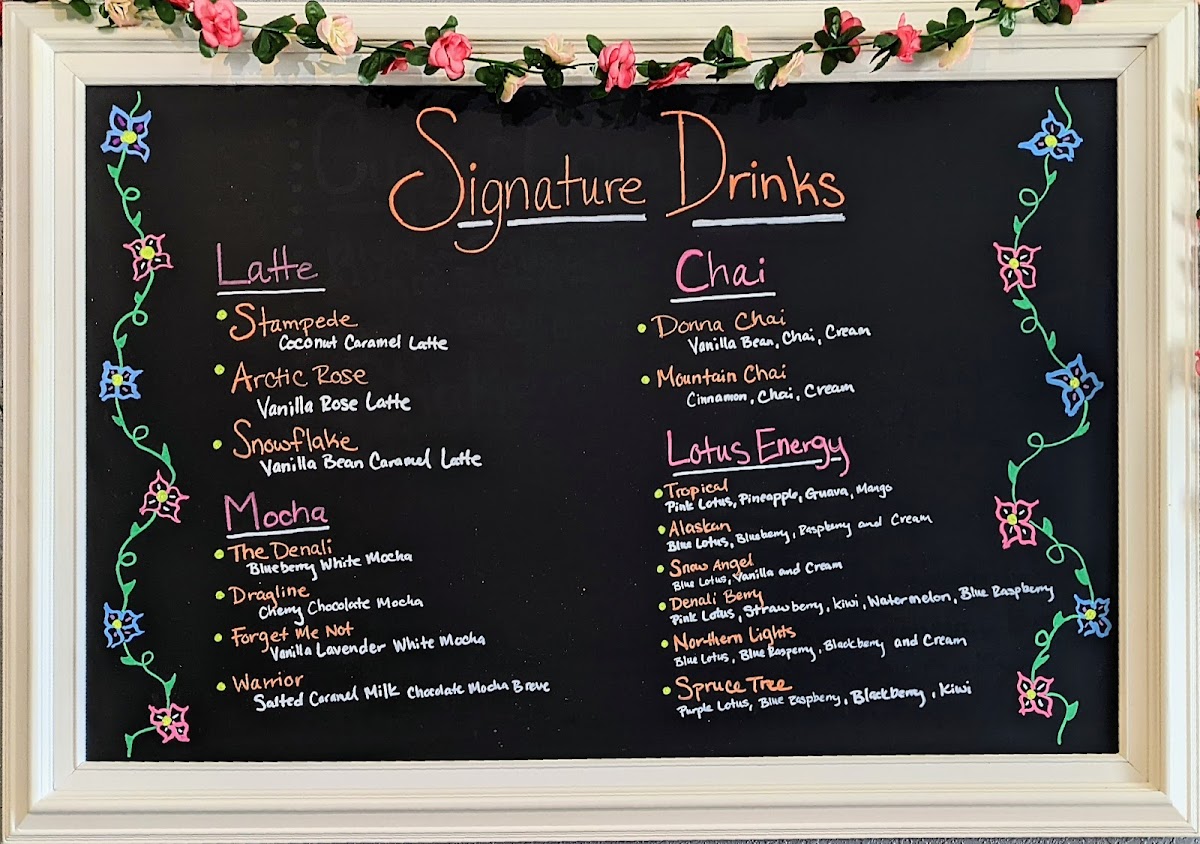 Signature Drinks
Latte
Stampede
Coconut Caramel Latte
Arctic Rose
Vanilla Rose Latte
Snowflake
Vanilla Bean Caramel Latte
Mocha
The Denali
Blueberry White Mocha
Dragline
Cherry Chocolate Mocha
Forget Me Not
Vanilla Lavender White Mocha
Warrior
Salted Caramel Milk Chocolate Mocha Breve
Chai
Donna Chai
Vanilla Bean, Chai, Cream
Mountain Chai
Cinnamon, Chai, Cream
Lotus Energy
Tropical
Pink Lotus, Pineapple, Guava, Mango
Alaskan
Blue Lotus, Blueberry, Raspberry and Cream
Snow Angel
Blue Lotus, Vanilla and Cream
Denali Berry
Pink Lotus, Strawberry, Kiwi, Watermelon, Blue Raspberry
Northern Lights
Blue Lotus, Blue Rasperry, Blackberry and Cream
Spruce Tree
Purple Lotus, Blue Raspberry, Blackberry, Kiwi